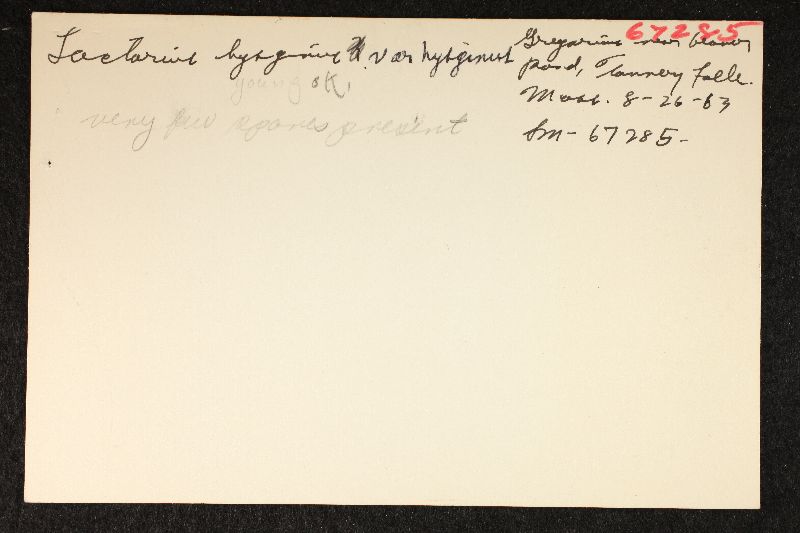 67285
Lactarius hysginus var hysginus
young ok.
very few spores present
Gregarious near beaver
pond, Tannery Falls.
Mass. 8-26-63
Sm- 67285-